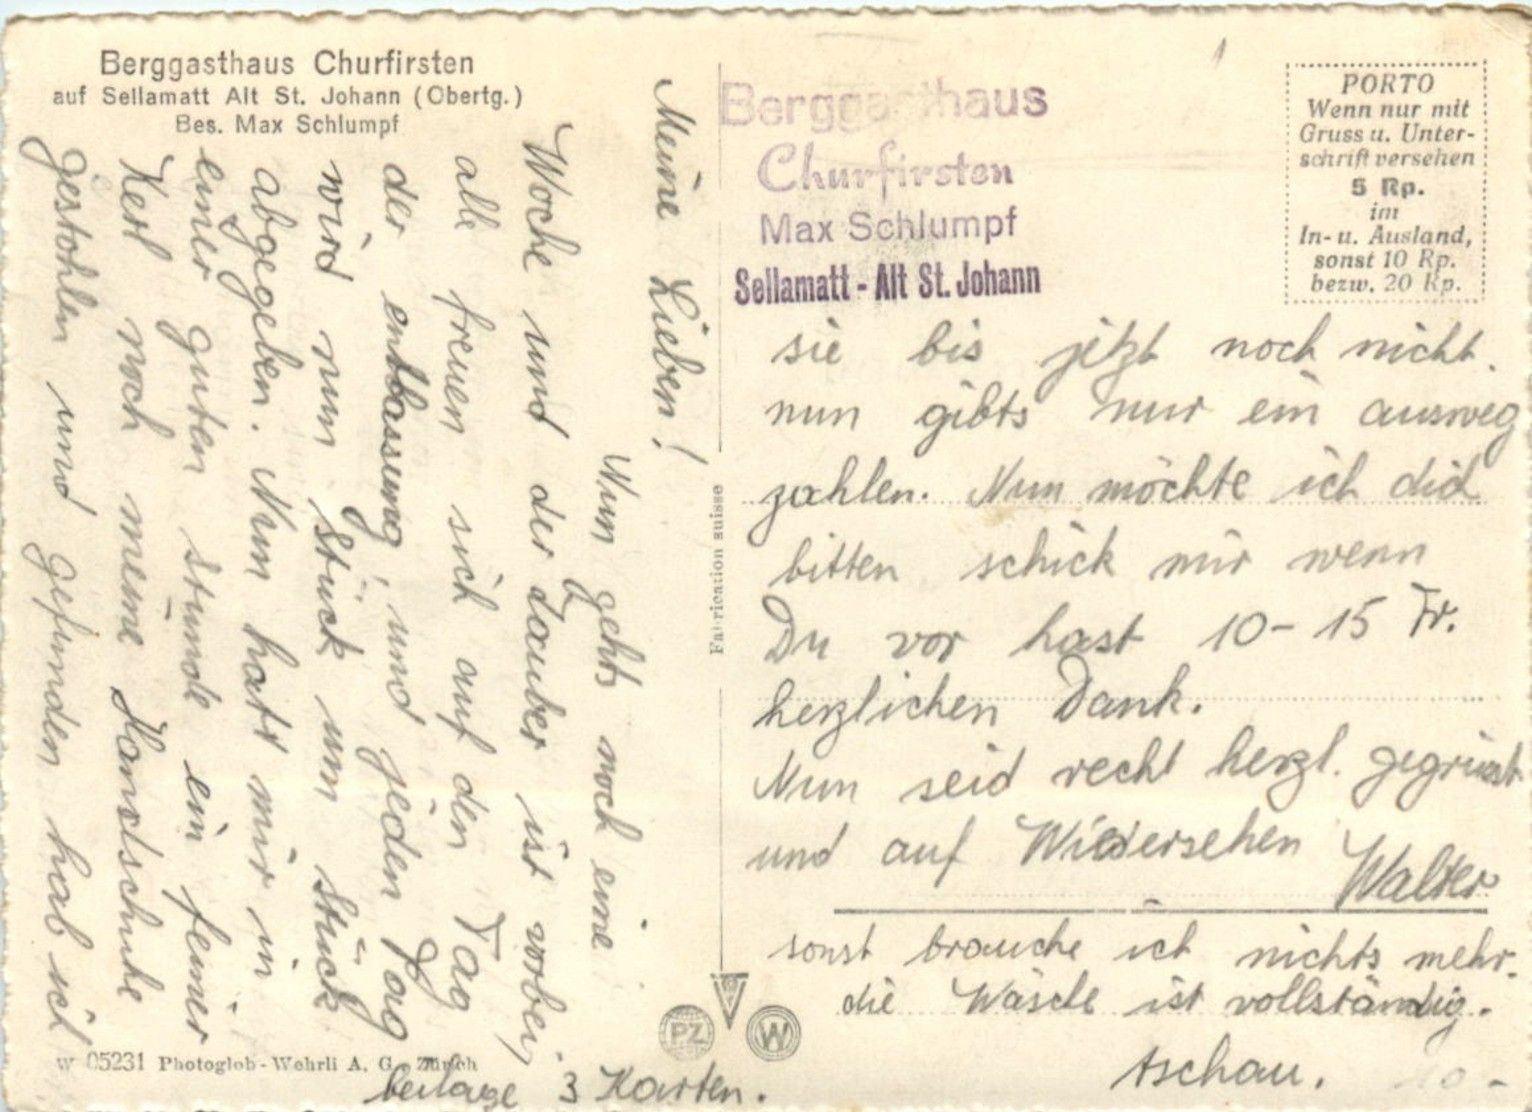 Berggasthaus Churfirsten
auf Sellamatt Alt St. Johann (Obertg.)
Bes. Max Schlumpf
Meine Lieben!
Nun gehts noch eine
Woche und der Zauber ist vorbei,
alle freuen sich auf den Tag
der entlassung, und jeden Tag
wird nun Stück um Stück
abgegeben. Nun hatt mir in
einer guten Stunde ein feiner
Kerl noch meine Handschuhe
gestohlen und gefunden hab ich
Berggasthaus
Churfirsten
Max Schlumpf
Sellamatt - Alt St. Johann
PORTO
Wenn nur mit
Gruss u. Unter-
schrift versehen
5 Rp.
im
In- u. Ausland,
sonst 10 Rp.
bezw. 20 Rp.
sie bis jetzt noch nicht.
nun gibts nur ein ausweg
zahlen. Nun möchte ich dich
bitten schick mir wenn
Du vor hast 10-15 Fr.
herzlichen Dank.
Nun seid recht herzl. gegrüsst
und auf Wiedersehen
Walter
sonst brauche ich nichts mehr.
die Wäsche ist vollständig.
tschau.
Fabrication suisse
PZ
W
W 05231 Photoglob-Wehrli A. G., Zürich
beilage 3 Karten.